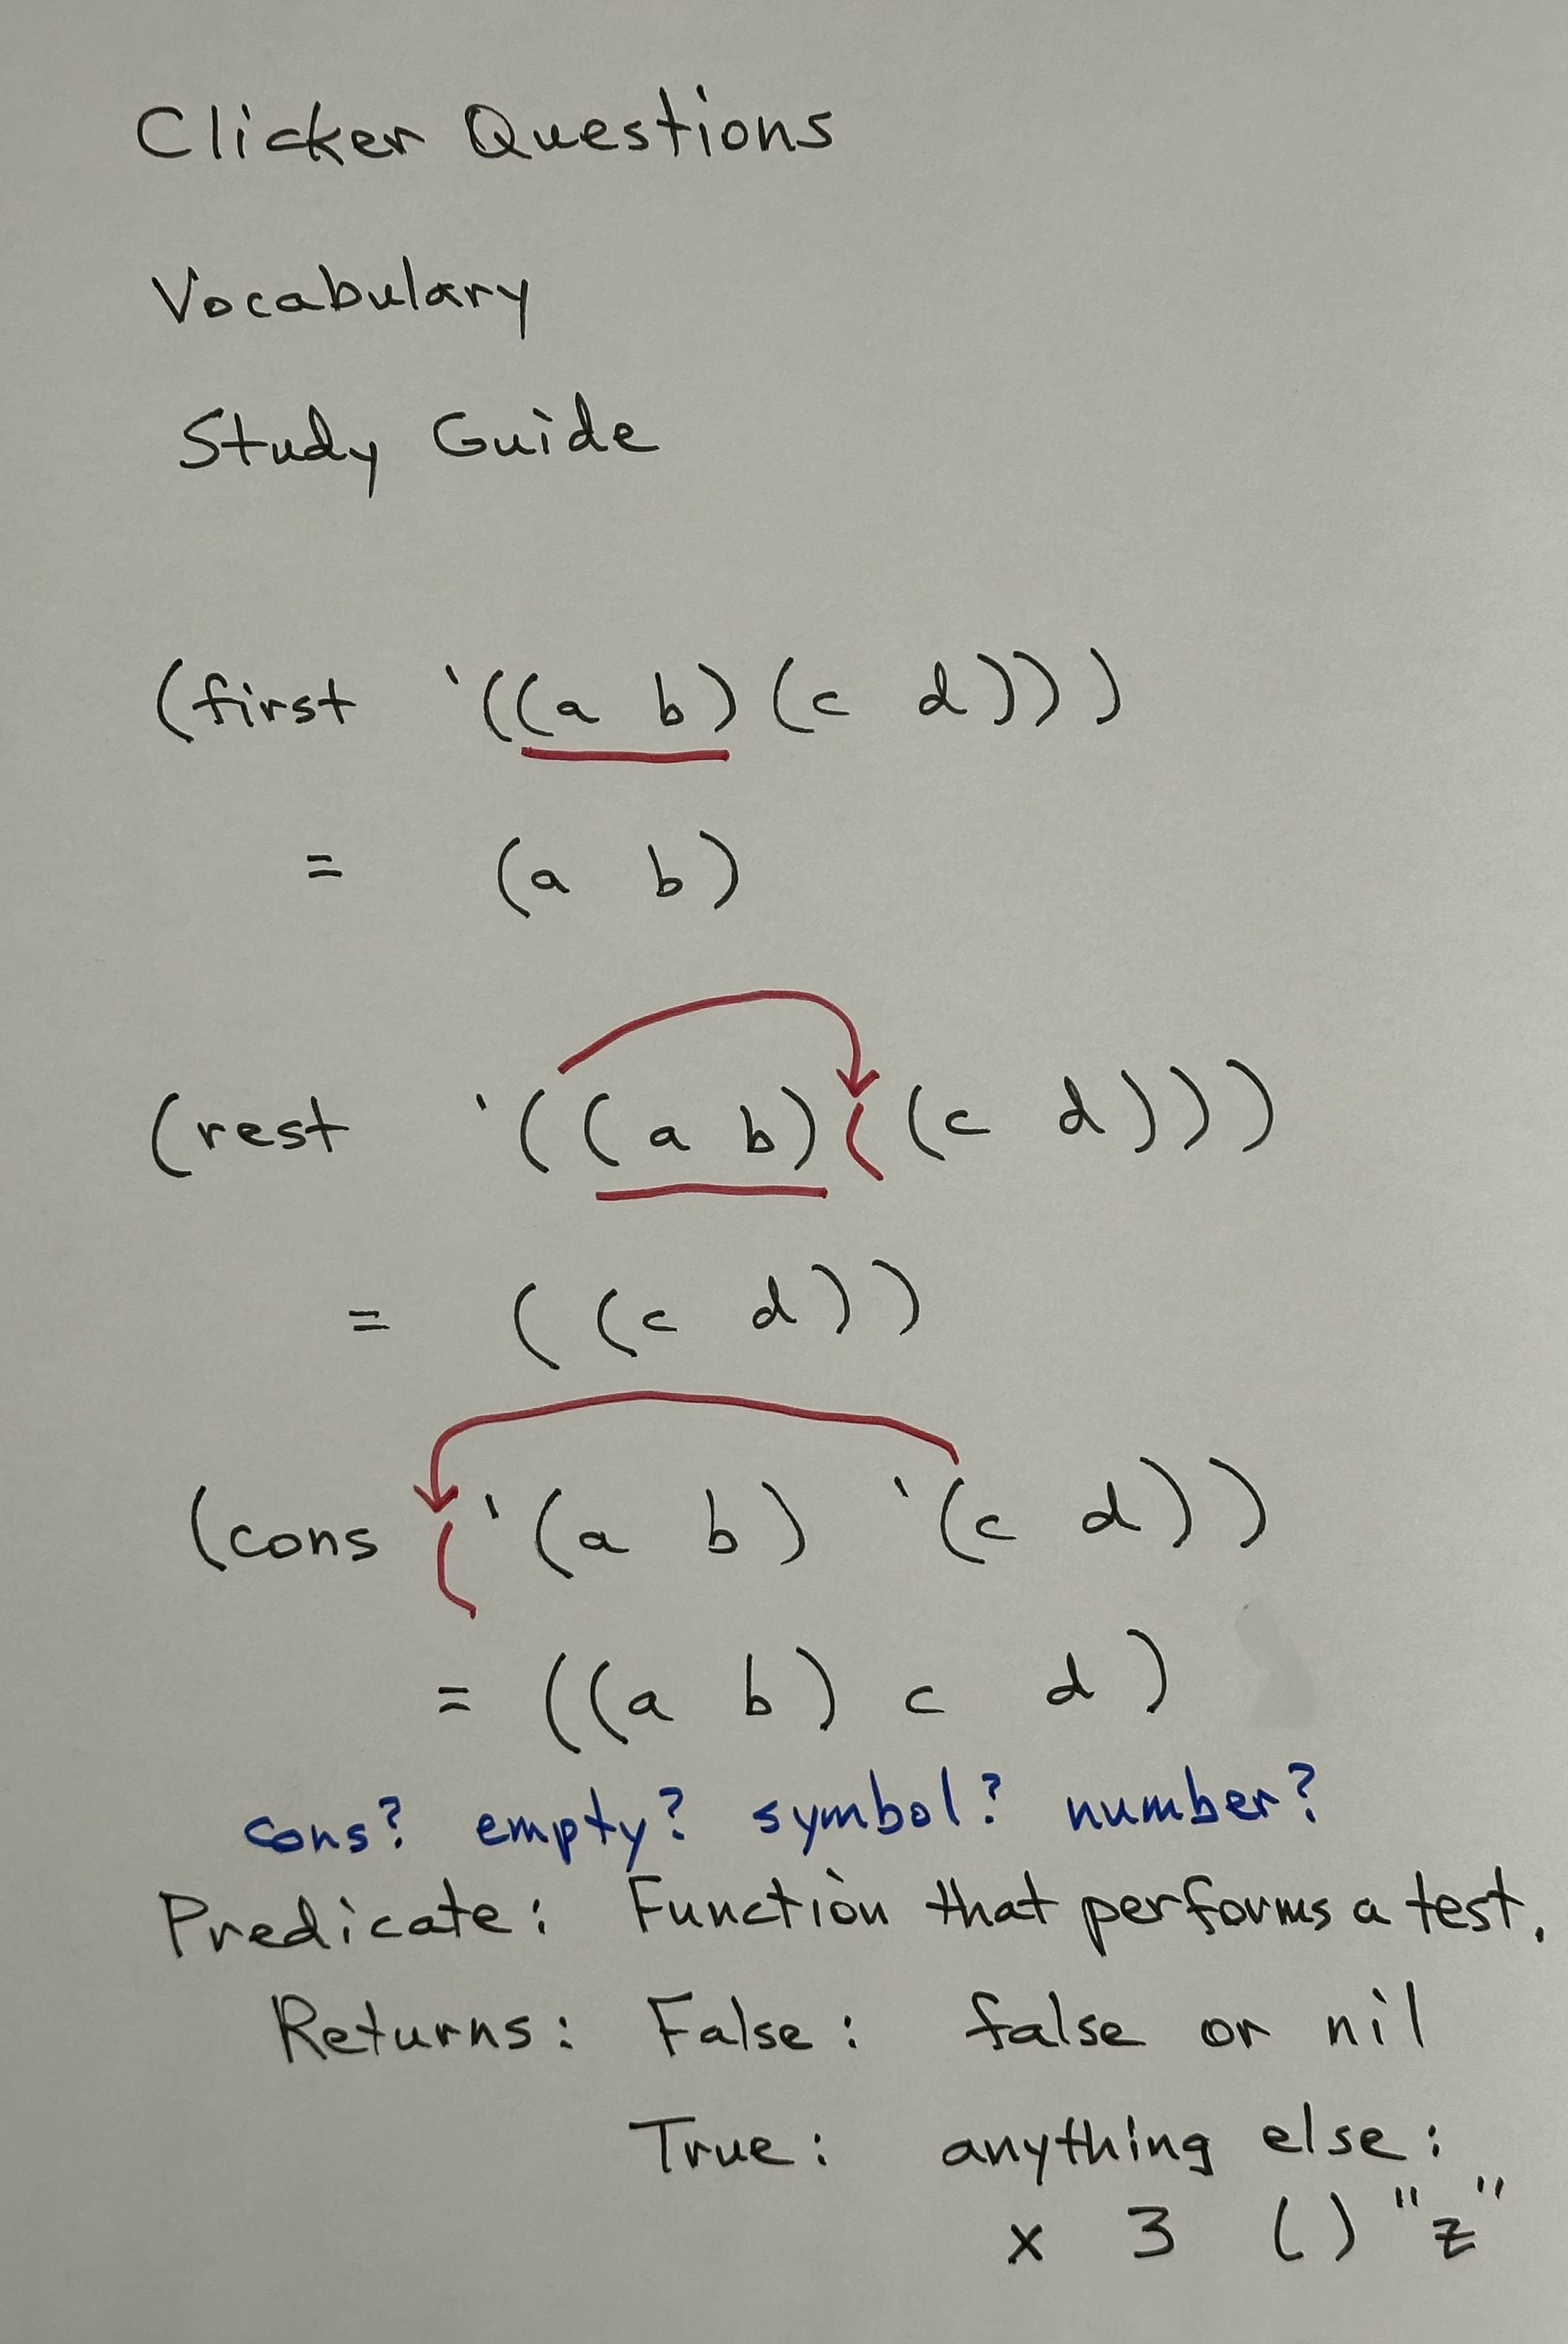 Clicker Questions
Vocabulary
Study Guide
(first '((a b)(c d)))
= (a b)
(rest '((a b)((c d)))
= ((c d))
(cons ('(a b) '(c d))
= ((a b) c d)
cons? empty? symbol? number?
Predicate: Function that performs a test.
Returns: False: false or nil
True: anything else:
x 3 () "z"